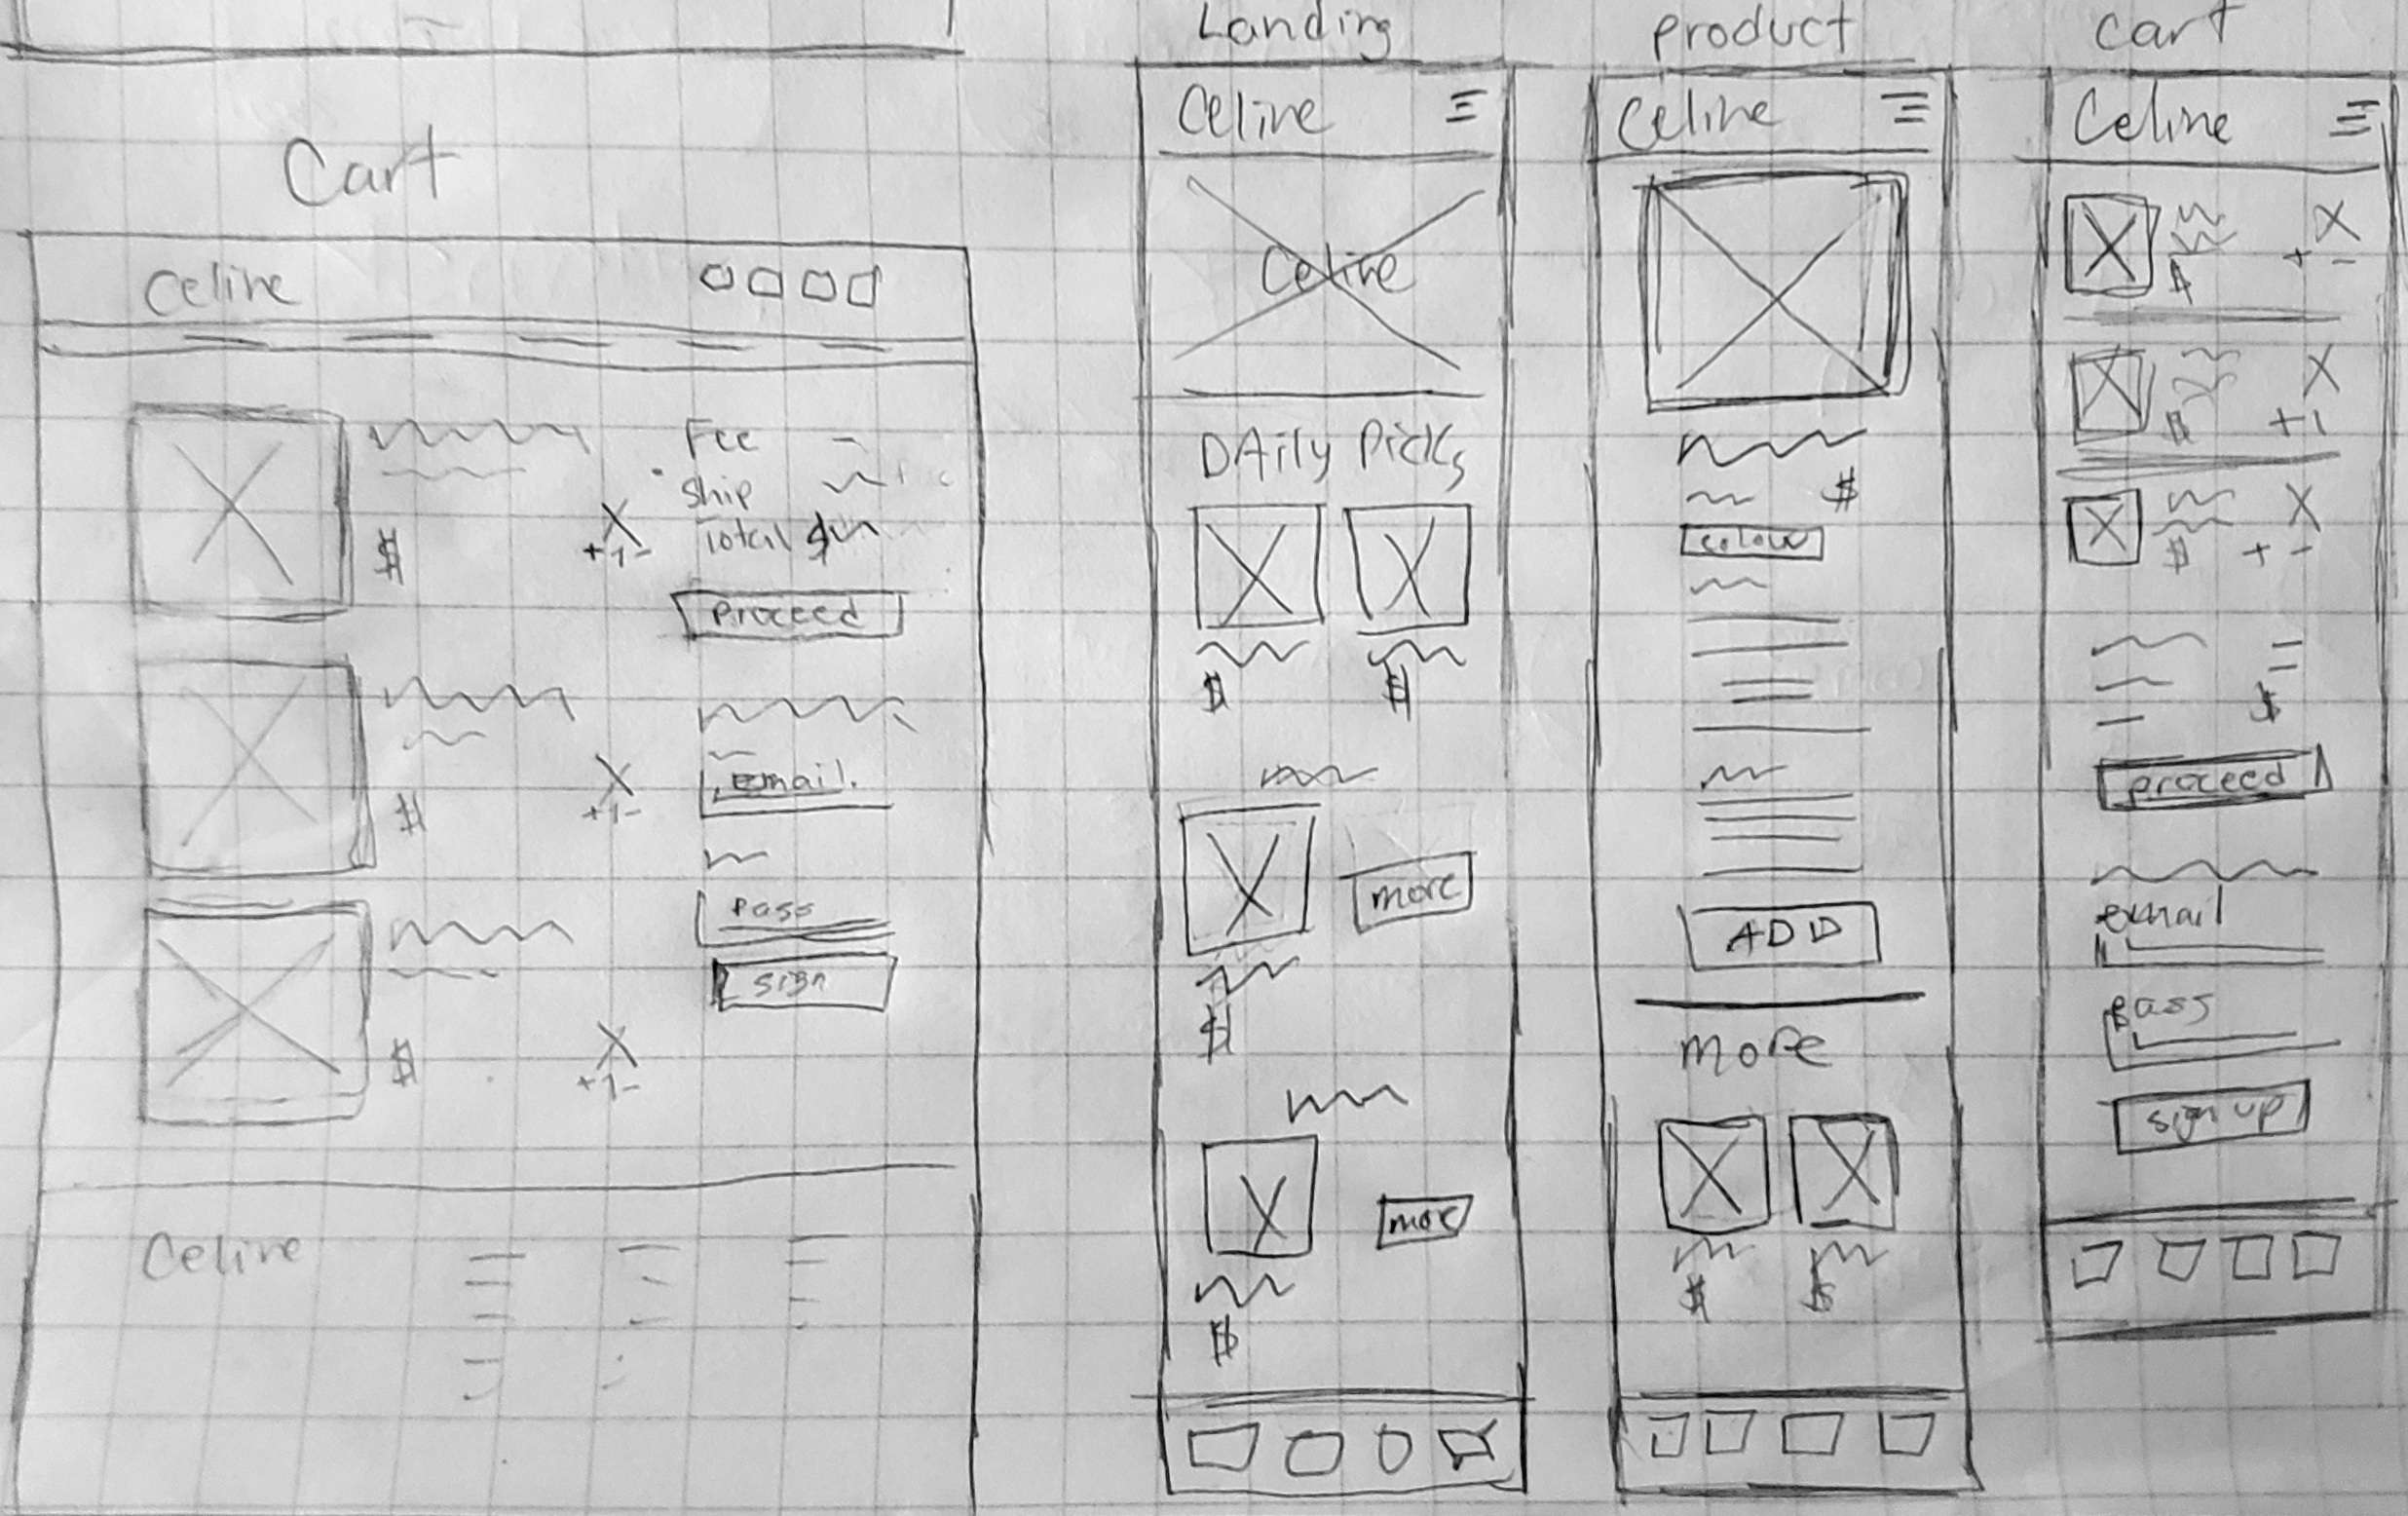 Cart
Celine
Fee
$
ship
X
+1-
Total $
Proceed
$
X
+1-
email.
Pass
sign
$
X
+1-
Celine
Landing
Celine
Celine
DAily Picks
$ $
more
$
more
$
product
Celine
$
colour
ADD
more
$ $
cart
Celine
X
$ + -
X
$ +1
X
$ + -
$
proceed
email
pass
sign up